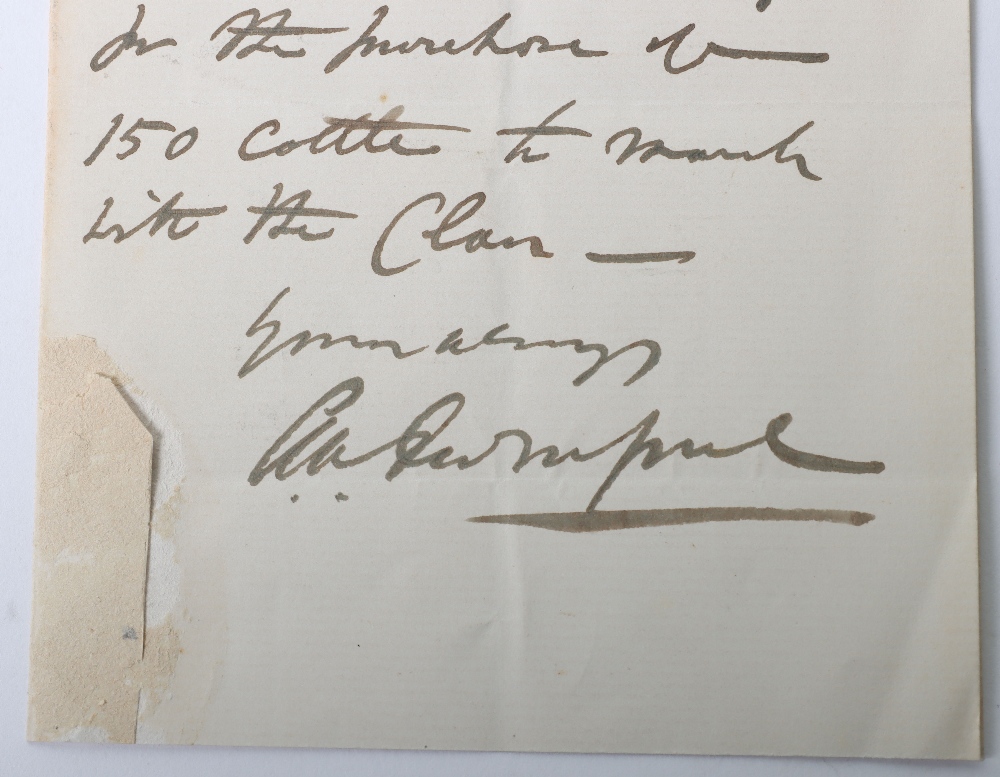 for the purchase of —
150 cattle to march
with the Clan —
Yours always